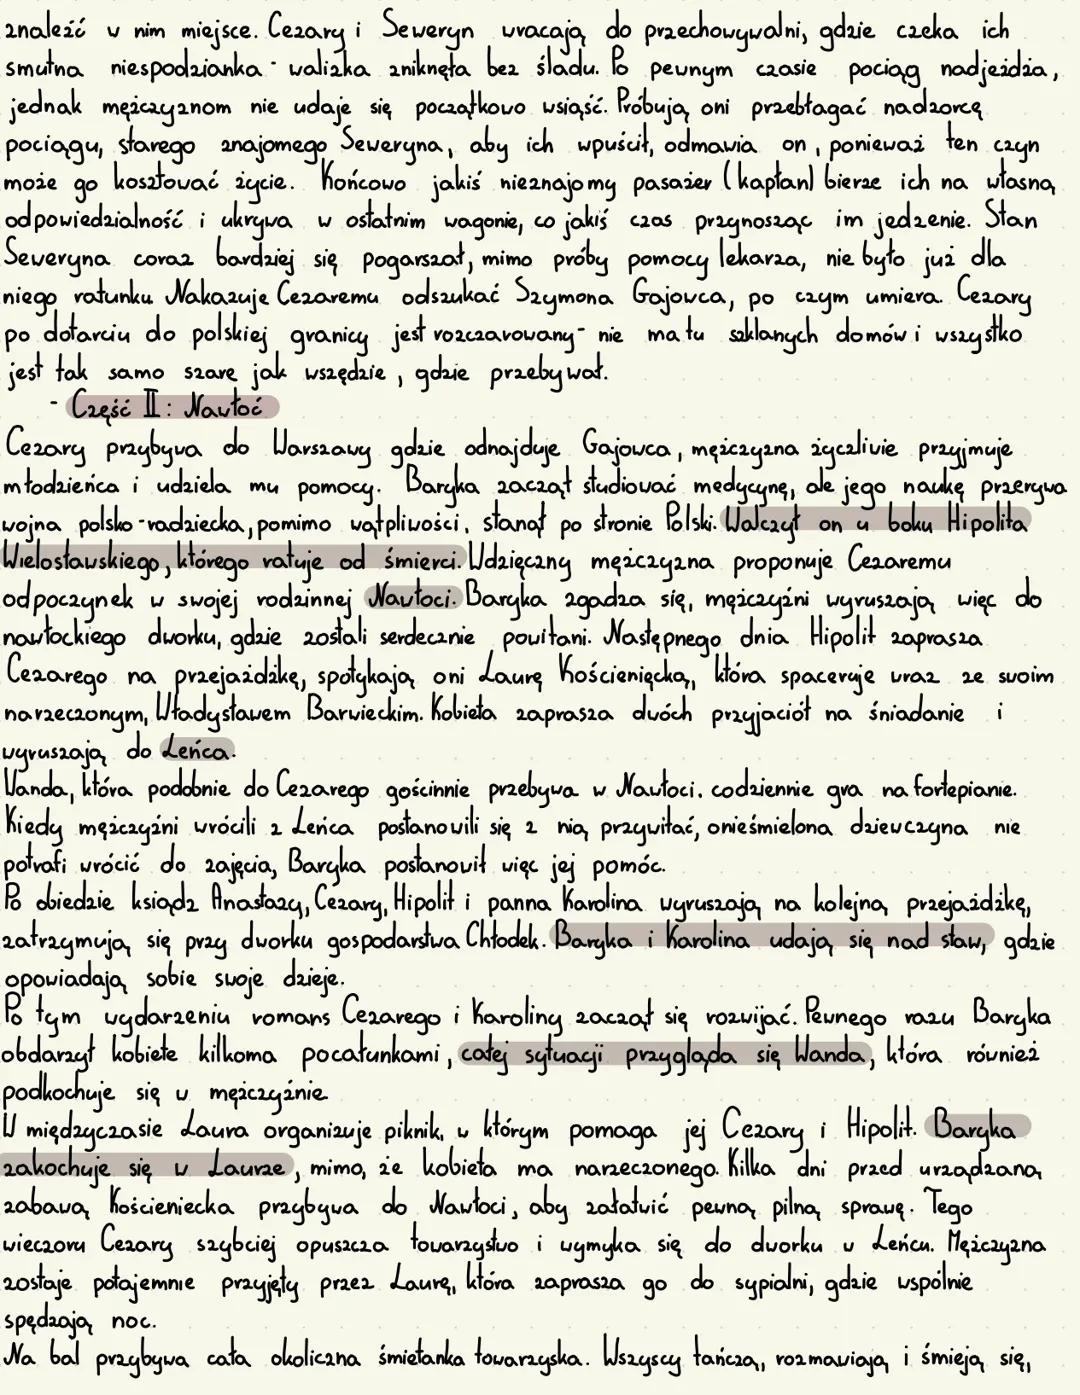 znaleźć w nim miejsce. Cezary i Seweryn wracają do przechowywalni, gdzie czeka ich
smutna niespodzianka - walizka zniknęła bez śladu. Po pewnym czasie pociąg nadjeżdża,
jednak mężczyznom nie udaje się początkowo wsiąść. Próbują oni przebłagać nadzorcę
pociągu, starego znajomego Seweryna, aby ich wpuścił, odmawia on, ponieważ ten czyn
może go kosztować życie. Końcowo jakiś nieznajomy pasażer (kapłan) bierze ich na własną
odpowiedzialność i ukrywa w ostatnim wagonie, co jakiś czas przynosząc im jedzenie. Stan
Seweryna coraz bardziej się pogarszał, mimo próby pomocy lekarza, nie było już dla
niego ratunku. Nakazuje Cezaremu odszukać Szymona Gajowca, po czym umiera. Cezary
po dotarciu do polskiej granicy jest rozczarowany- nie ma tu szklanych domów i wszystko
jest tak samo szare jak wszędzie, gdzie przebywał.
- Część II: Nawłoć
Cezary przybywa do Warszawy gdzie odnajduje Gajowca, mężczyzna życzliwie przyjmuje
młodzieńca i udziela mu pomocy. Baryka zaczął studiować medycynę, ale jego naukę przerywa
wojna polsko-radziecka, pomimo wątpliwości, stanął po stronie Polski. Walczył on u boku Hipolita
Wielosławskiego, którego ratuje od śmierci. Wdzięczny mężczyzna proponuje Cezaremu
odpoczynek w swojej rodzinnej Nawłoci. Baryka zgadza się, mężczyźni wyruszają więc do
nawłockiego dworku, gdzie zostali serdecznie powitani. Następnego dnia Hipolit zaprasza
Cezarego na przejażdżkę, spotykają oni Laurę Kościeniecką, która spaceruje wraz ze swoim
narzeczonym, Władysławem Barwickim. Kobieta zaprasza dwóch przyjaciół na śniadanie i
wyruszają do Leńca.
Wanda, która podobnie do Cezarego gościnnie przebywa w Nawłoci, codziennie gra na fortepianie.
Kiedy mężczyźni wrócili z Leńca postanowili się z nią przywitać, onieśmielona dziewczyna nie
potrafi wrócić do zajęcia, Baryka postanowił więc jej pomóc.
Po obiedzie ksiądz Anastazy, Cezary, Hipolit i panna Karolina wyruszają na kolejną przejażdżkę,
zatrzymują się przy dworku gospodarstwa Chłodek. Baryka i Karolina udają się nad staw, gdzie
opowiadają sobie swoje dzieje.
Po tym wydarzeniu romans Cezarego i Karoliny zaczął się rozwijać. Pewnego razu Baryka
obdarzył kobietę kilkoma pocałunkami, całej sytuacji przygląda się Wanda, która również
podkochuje się w mężczyźnie
W międzyczasie Laura organizuje piknik, w którym pomaga jej Cezary i Hipolit. Baryka
zakochuje się w Laurze, mimo, że kobieta ma narzeczonego. Kilka dni przed urządzaną
zabawą Kościeniecka przybywa do Nawłoci, aby załatwić pewną pilną sprawę. Tego
wieczoru Cezary szybciej opuszcza towarzystwo i wymyka się do dworku w Leńcu. Mężczyzna
zostaje potajemnie przyjęty przez Laurę, która zaprasza go do sypialni, gdzie wspólnie
spędzają noc.
Na bal przybywa cała okoliczna śmietanka towarzyska. Wszyscy tańczą, rozmawiają i śmieją się,